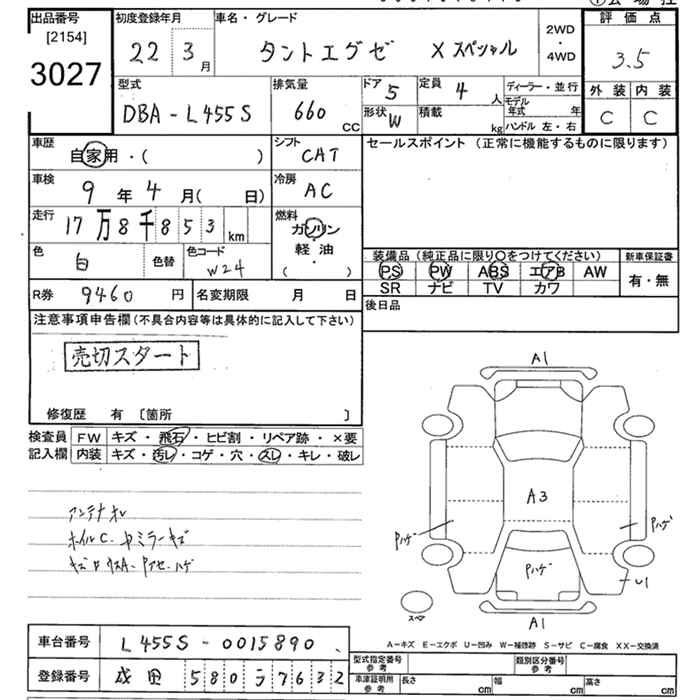 出品番号
[2154]
3027
初度登録年月
22 3月
車名・グレード
タントエグゼ Xスペシャル
2WD
・
4WD
評価点
3.5
外装 内装
C C
型式
DBA-L455S
排気量
660
CC
ドア 5
定員 4 人
形状 W
積載 kg
ディーラー・並行
モデル年式 年
ハンドル 左・右
車歴
自家用・( )
シフト
CAT
セールスポイント (正常に機能するものに限ります)
車検
9年4月( 日)
冷房
AC
走行
17万8千853
km
燃料
ガソリン
軽油
( )
色
白
色替
色コード
W24
装備品 (純正品に限り○をつけてください)
新車保証書
PS PW ABS エアB AW
SR ナビ TV カワ
有・無
R券 9460 円
名変期限 月 日
後日品
注意事項申告欄 (不具合内容等は具体的に記入して下さい)
売切スタート
修復歴 有 [箇所 ]
検査員
記入欄
FW キズ・飛石・ヒビ割・リペア跡・×要
内装 キズ・汚レ・コゲ・穴・スレ・キレ・破レ
アンテナオレ
ホイルC.
ミラーキズ
A1
A3
Pハゲ
Pハゲ
Pハゲ
U1
スペア
A1
A-キズ E-エクボ U-凹み W-補修跡 S-サビ C-腐食 XX-交換済
車台番号 L455S-0015890
登録番号 成田 580ラ7632
型式指定番号
参考
類別区分番号
参考
車庫証明用
参考
長さ cm
幅 cm
高さ cm